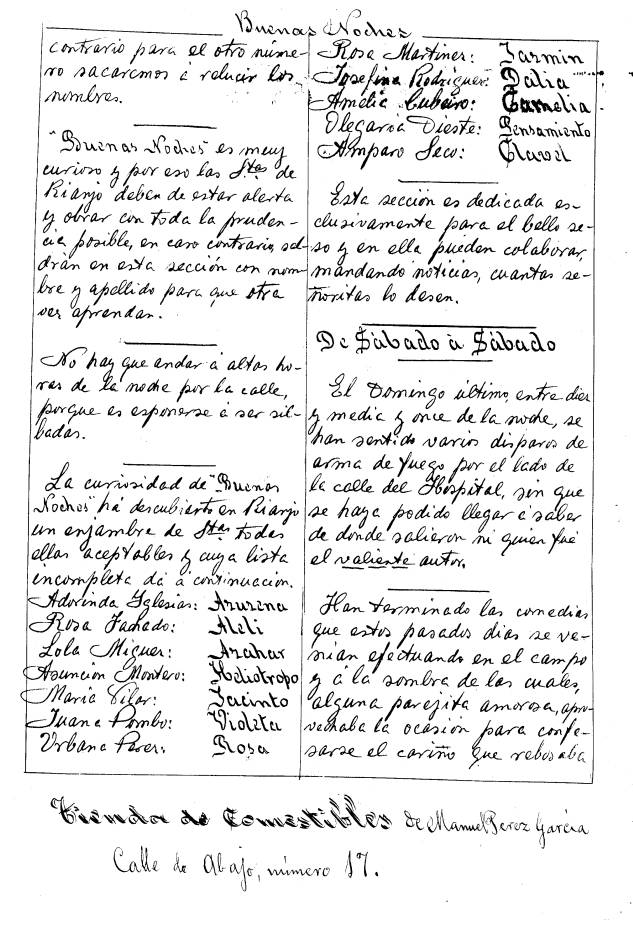 Buenas Noches
contrario para el otro núme-
ro sacaremos á relucir los
nombres.
"Buenas Noches" es muy
curioso y por eso las Stas de
Rianjo deben de estar alerta
y obrar con toda la pruden-
cia posible, en caso contrario, sal-
drán en esta sección con nom-
bre y apellido para que otra
vez aprendan.
No hay que andar á altas ho-
ras de la noche por la calle,
porque es esponerse á ser sil-
badas.
La curiosidad de "Buenas
Noches" há descubierto en Rianjo
un enjambre de Stas todas
ellas aceptables y cuya lista
incompleta dá á continuacion.
Adorinda Iglesias: Azuzena
Rosa Fachado: Aleli
Lola Miguez: Azahar
Asunción Montero: Heliotropo
Maria Pilar: Jacinto
Juana Pombo: Violeta
Urbana Perez: Rosa
Rosa Martinez: Jazmin
Josefina Rodriguez: Dalia
Amelia Cubeiro: Camelia
Olegaria Dieste: Pensamiento
Amparo Seco: Clavel
Esta sección es dedicada es-
clusivamente para el bello se-
so y en ella pueden colaborar,
mandando noticias, cuantas se-
ñoritas lo deseen.
De Sábado á Sábado
El Domingo último, entre diez
y media y once de la noche, se
han sentido varios disparos de
arma de fuego por el lado de
la calle del Hospital, sin que
se haya podido llegar á saber
de donde salieron ni quien fué
el valiente autor.
Han terminado las comedias
que estos pasados dias se ve-
nian efectuando en el campo
y á la sombra de las cuales,
alguna parejita amorosa, apro-
vechaba la ocasión para confe-
sarse el cariño que rebosaba
Tienda de Comestibles de Manuel Perez García
Calle de Abajo, número 17.